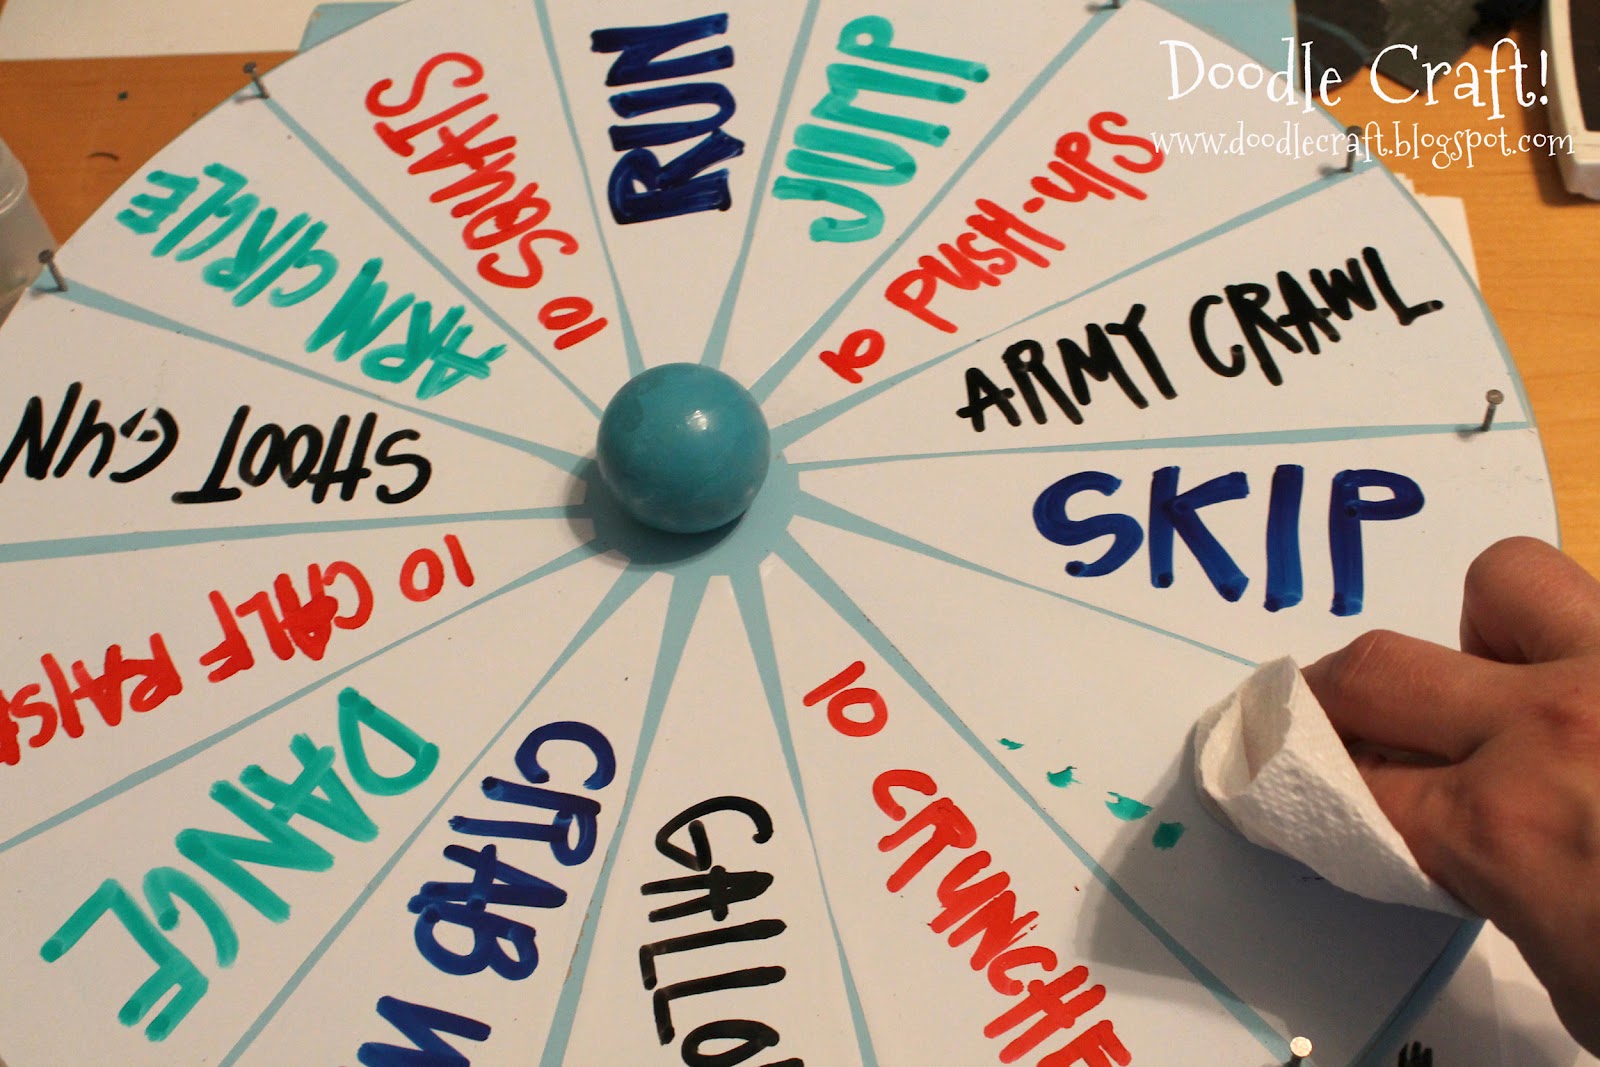 Doodle Craft!
www.doodlecraft.blogspot.com
RUN
JUMP
10 PUSH-UPS
ARMY CRAWL
SKIP
10 CRUNCHE
GALLO
CRAB W
DANCE
10 CALF RAISE
SHOOT GUN
ARM CIRCLE
10 SQUATS